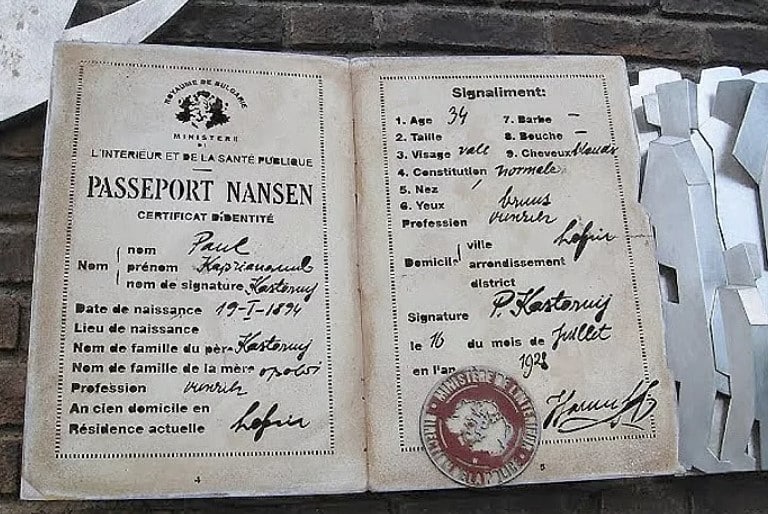 ROYAUME DE BULGARIE
MINISTERE
DE
L'INTERIEUR ET DE LA SANTÉ PUBLIQUE
PASSEPORT NANSEN
CERTIFICAT D'IDENTITÉ
Nom
nom Paul
prénom
nom de signature Kasterny
Date de naissance 19-I-1894
Lieu de naissance
Nom de famille du père Kasterny
Nom de famille de la mère
Profession ouvrier
Ancien domicile en
Résidence actuelle
4
Signaliment:
1. Age 34 7. Barbe —
2. Taille 8. Bouche —
3. Visage 9. Cheveux
4. Constitution normale
5. Nez
6. Yeux bruns
Profession ouvrier
Domicile
ville
arrendissement
district
Signature P. Kasterny
le 16 du mois de Juillet
en l'an 1928
MINISTÈRE DE L'INTER
5